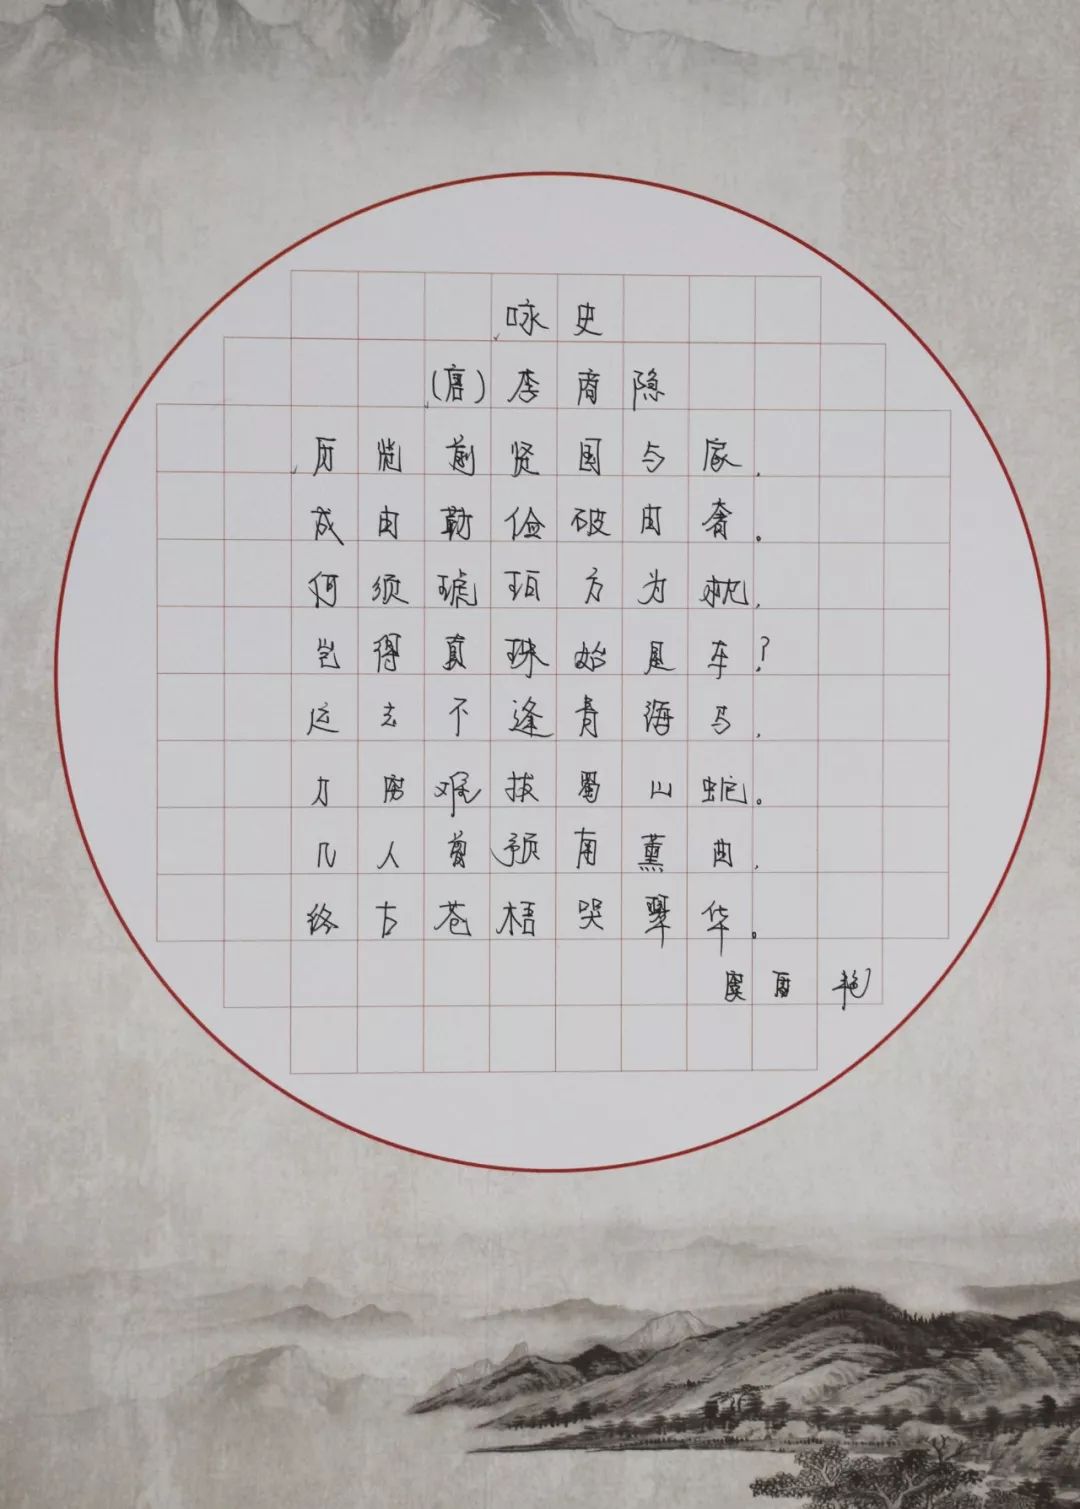 咏史
(唐)李商隐
历览前贤国与家,
成由勤俭破由奢。
何须琥珀方为枕,
岂得真珠始是车?
运去不逢青海马,
力穷难拔蜀山蛇。
几人曾预南薰曲,
终古苍梧哭翠华。